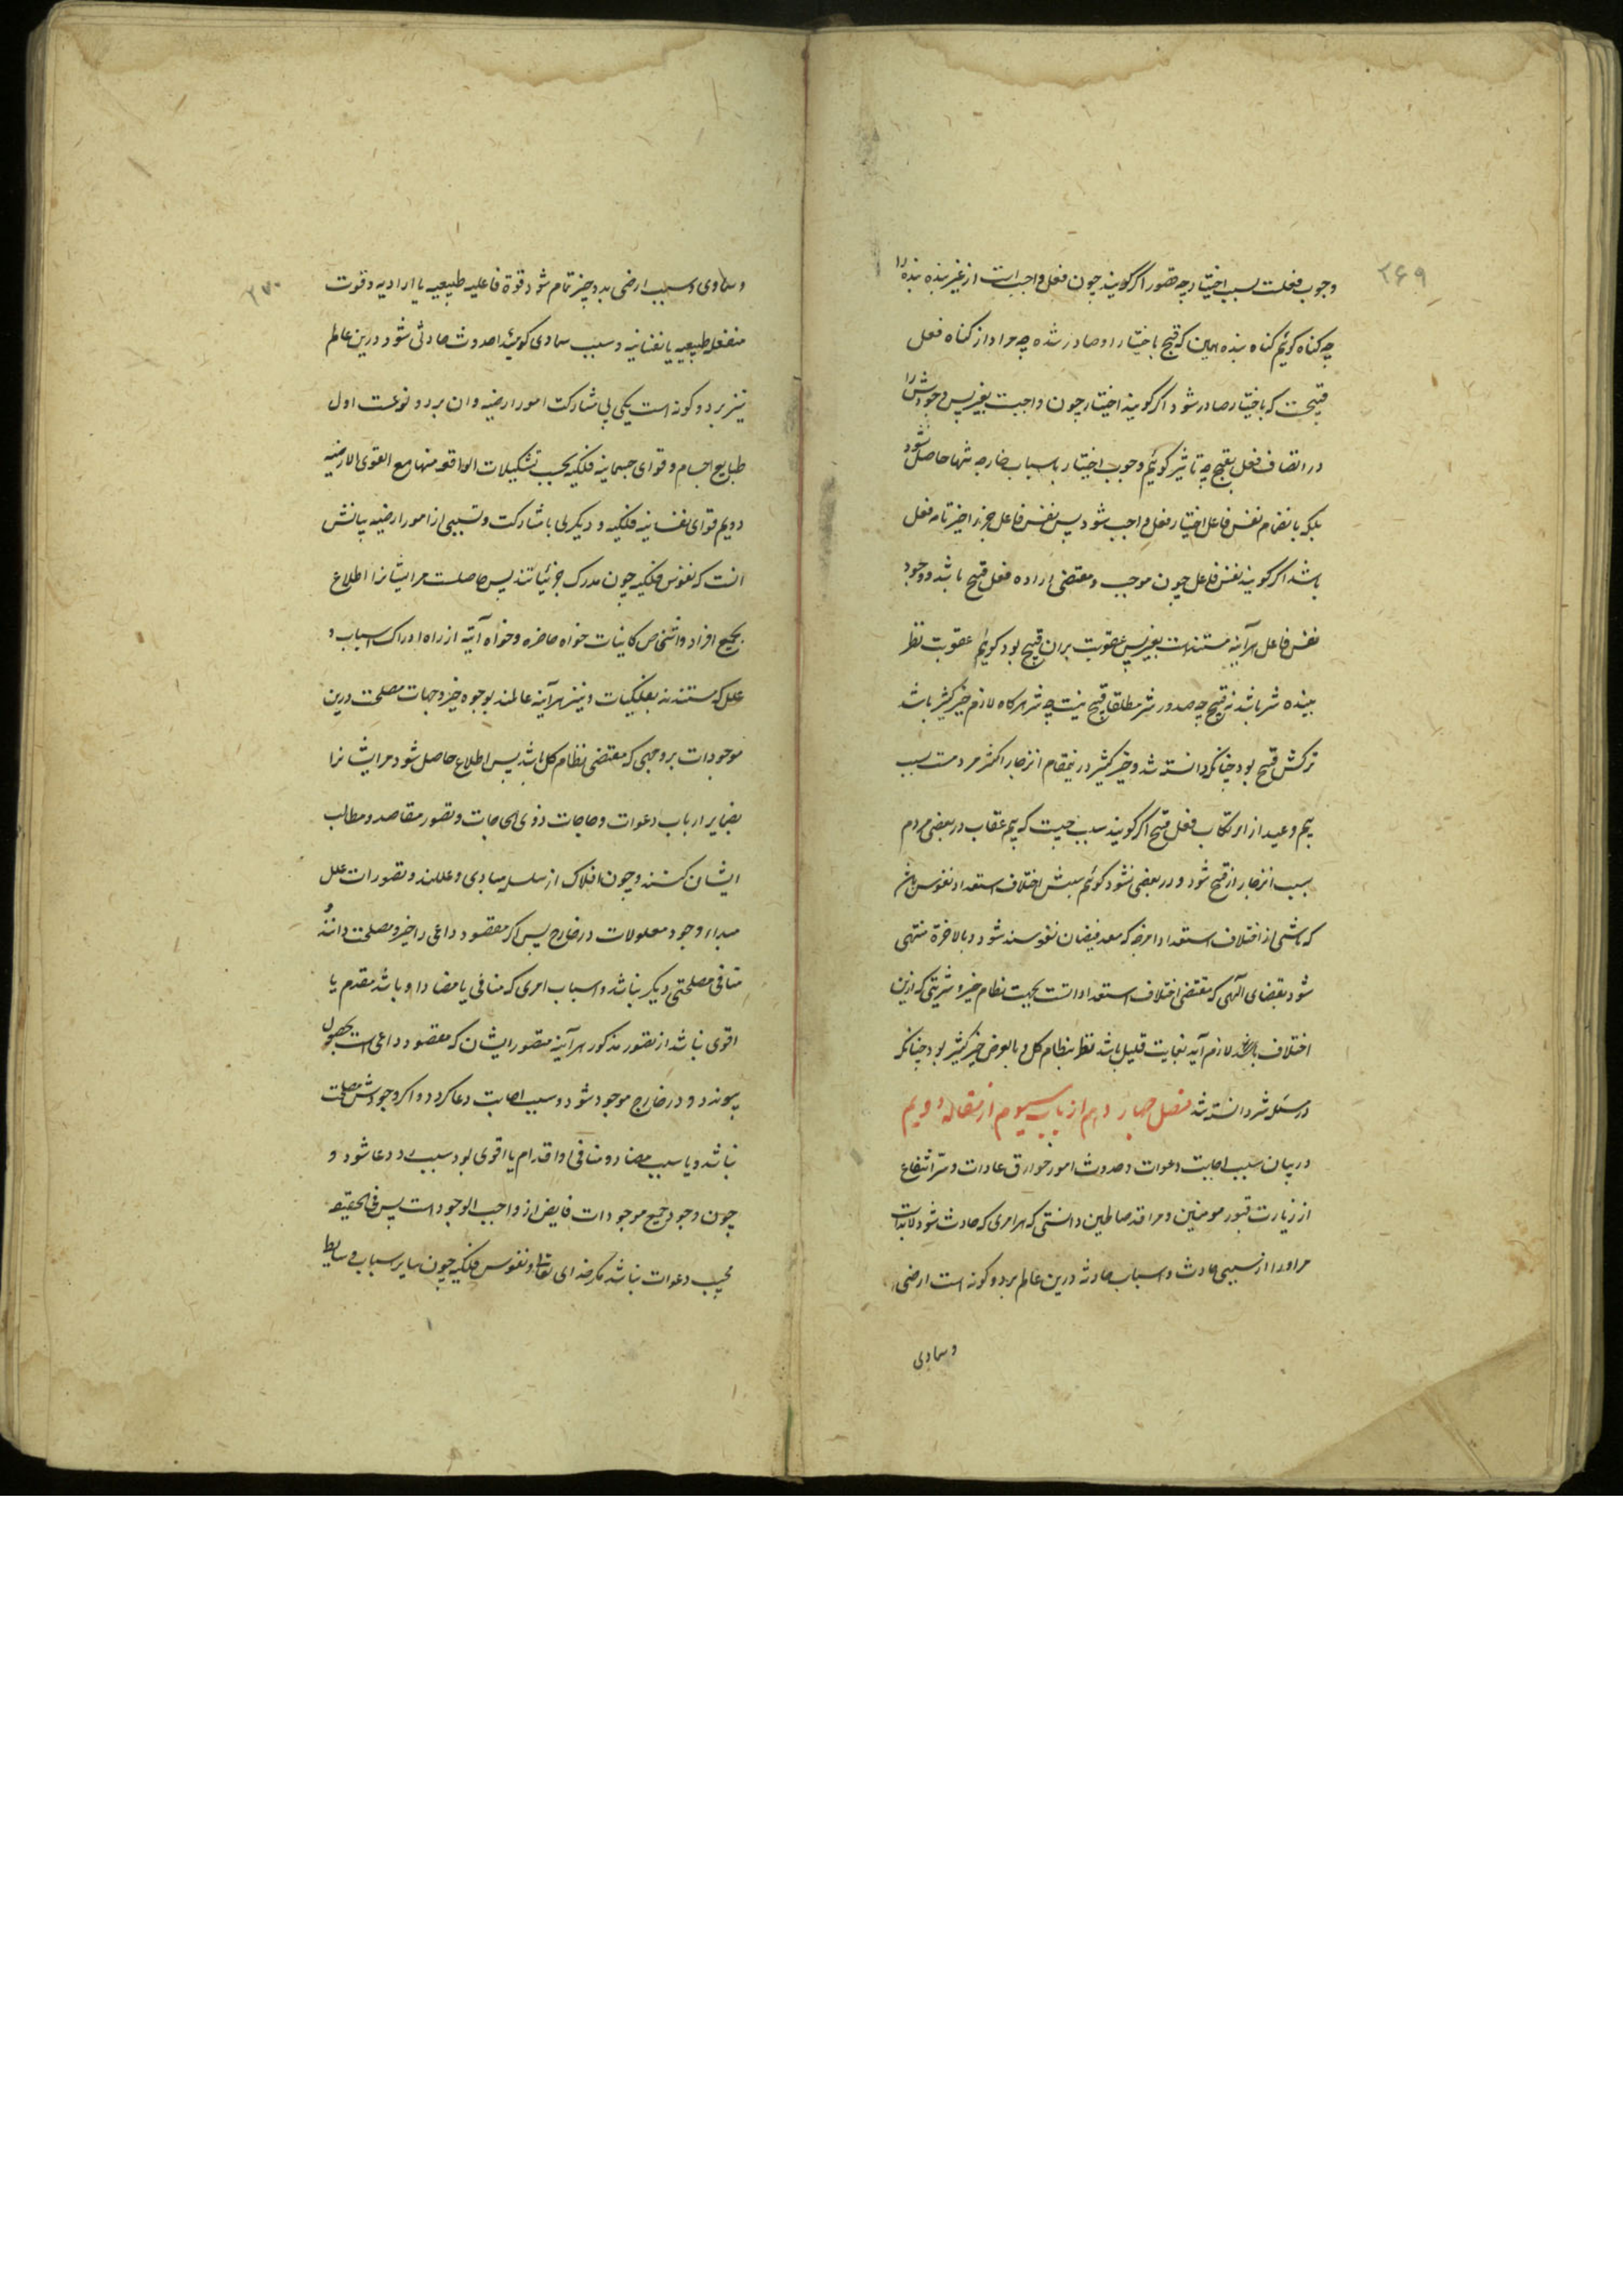 ۲۶۹
وجوب فعلست بسبب اختیار چه قصور اگر گویند چون فعل واجب است از غیر بنده بنده را
چه گناه گوئیم گناه بنده همین که قبیح باختیار او صادر شده چه مراد از گناه فعل
قبیحست که باختیار صادر شود اگر گویند اختیار چون واجبست بغیر پس وجودش را
در اتصاف فعل بقبح چه تاثیر گوئیم وجوب اختیار باسباب خارجه تنها حاصل نشود
بلکه بانضمام نفس فاعل اختیار فعل واجب شود پس نفس فاعل جزو اخیر تامه فعل
باشد اگر گویند نفس فاعل چون موجب و مقتضی اراده فعل قبیح باشد و وجود
نفس فاعل هرآینه مستندست بغیر پس عقوبت بران قبیح بود گوئیم عقوبت نظر
ببنده شر باشد نه قبیح چه صدور شر مطلقا قبیح نیست چه شر هرگاه لازم خیر کثیر باشد
ترکش قبیح بود چنانکه دانسته شد و خیر کثیر درینمقام انزجار اکثر مردمست بسبب
بیم وعید از ارتکاب فعل قبیح اگر گویند سبب چیست که بیم عقاب در بعضی مردم
سبب انزجار از قبیح شود و در بعضی نشود گوئیم سببش اختلاف استعداد نفوس باشد
که ناشی از اختلاف استعداد امزجه که معد فیضان نفوسند شود و بالاخرة منتهی
شود بقضای الهی که مقتضی اختلاف استعداداتست بجهت نظام خیر و شریتی که ازین
اختلاف بالعرض لازم آید بغایت قلیل باشد نظر بنظام کل و بالعوض خیر کثیر بود چنانکه
در مسئله شر دانسته شد فصل چهاردهم از باب سیوم از مقاله دویم
در بیان سبب اجابت دعوات و حدوث امور خوارق عادات و سر انتفاع
از زیارت قبور مومنین و مراقد صالحین دانستی که هر امری که حادث شود لابدست
مر او را از سببی حادث و اسباب حادثه درین عالم بر دو گونه است ارضی
و سماوی
۲۷۰
و سماوی و سبب ارضی بدو چیز تمام شود قوة فاعلیه طبیعیه یا ارادیه و قوت
منفعله طبیعیه یا نفسانیه و سبب سماوی که مبدا حدوث حادثی شود درین عالم
نیز بر دو گونه است یکی بی مشارکت امور ارضیه و ان بر دو نوعست اول
طبایع اجسام و قوای جسمانیه فلکیه بحسب تشکیلات الواقعه منها مع القوی الارضیه
دویم قوای نفسانیه فلکیه و دیگری با مشارکت و تسببی از امور ارضیه بیانش
انست که نفوس فلکیه چون مدرک جزئیاتند پس حاصلست مر ایشانرا اطلاع
بجمیع افراد و اشخاص کاینات خواه حاضره و خواه آتیه از راه ادراک اسباب و
علل که مستندند بفلکیات و نیز هرآینه عالمند بوجوه خیر و جهات مصلحت درین
موجودات بر وجهی که مقتضی نظام کل باشد پس اطلاع حاصل شود مر ایشانرا
بضمایر ارباب دعوات و حاجات ذوی الحاجات و تصور مقاصد و مطالب
ایشان کنند و چون افلاک از سلسله مبادی و عللند و تصورات علل
مبداء وجود معلولات در خارج پس اگر مقصود داعی را خیر و مصلحت دانند و
منافی مصلحتی دیگر نباشد و اسباب امری که منافی یا مضاد او باشد مقدم یا
اقوی نباشد از تصور مذکور هرآینه متصور ایشان که مقصود داعی است بحصول
پیوندد و در خارج موجود شود و سبب اجابت دعا گردد و اگر وجودش مصلحت
نباشد و یا سبب مضاد و منافی او اقدام یا اقوی بود سبب رد دعا شود و
چون وجود جمیع موجودات فایض از واجب الوجود است پس فی الحقیقه
مجیب دعوات نباشد مگر خدای تعالی و نفوس فلکیه چون سایر اسباب وسایط